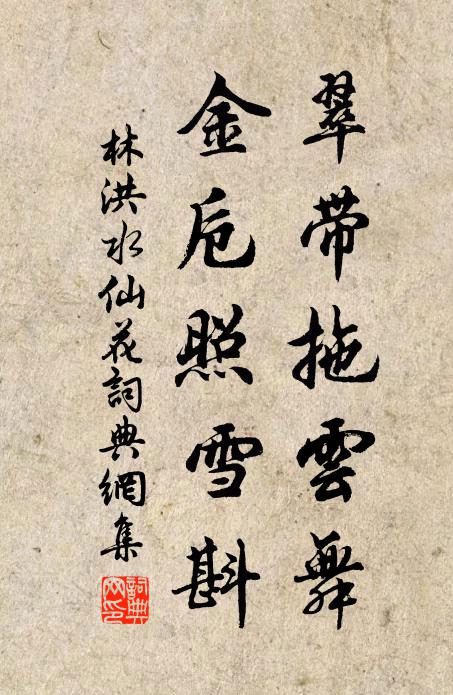 翠带拖雲舞
金卮照雪斟
林洪水仙花詞典網集
詞典網印